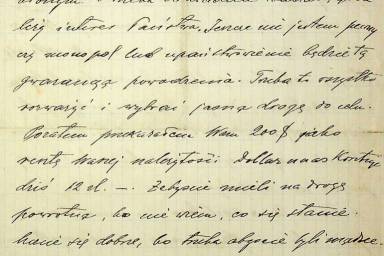 interes Państwa. Jeszcze nie jestem pewny
czy monopol lub upaństwowienie będzie tą
gwarancją powodzenia. Trzeba to wszystko
rozważyć i wybrać jasną drogę do celu.
Pozatem przekazałem Wam 200$ jako
resztę Waszej należytości. Dollar u nas
dziś 12 zł. —. Żebyście mieli na drogę
powrotną, bo nie wiem, co się stanie.
się dobrze, bo trzeba abyście byli